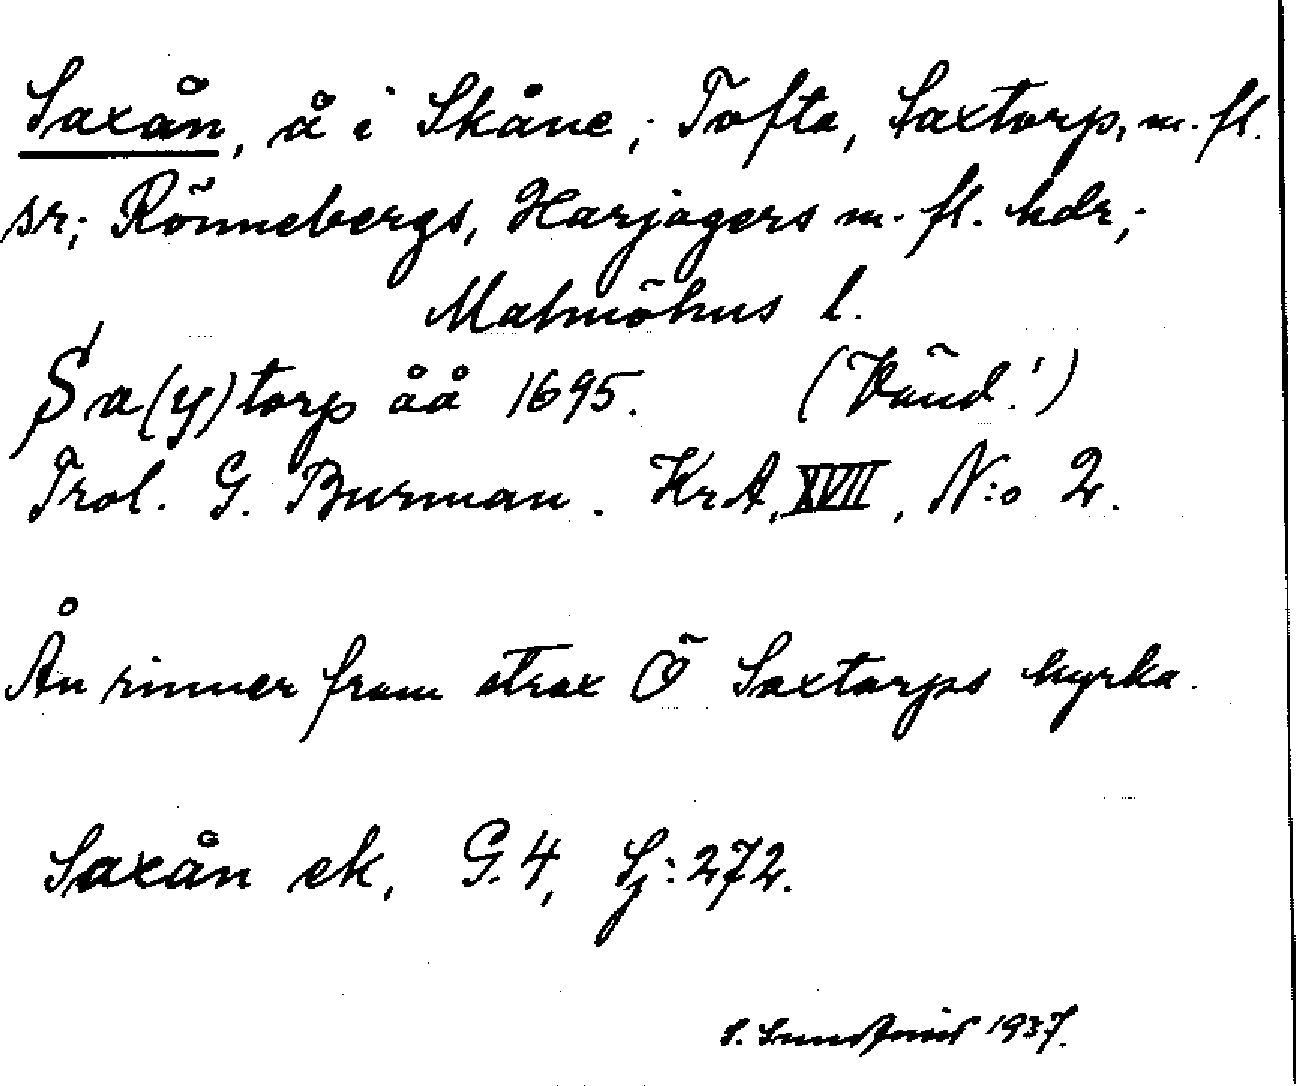 Saxån, å i Skåne; Tofta, Saxtorp, m. fl.
sr; Rönnebergs, Harjagers m. fl. hdr;
Malmöhus l.
Sa(y)torp åå 1695. (Vänd!)
Trol. G. Burman. KrA, XVII, N:o 2.
Ån rinner fram strax Ö Saxtorps kyrka.
Saxån ek, G.4, Sj:272.
S. 1937.